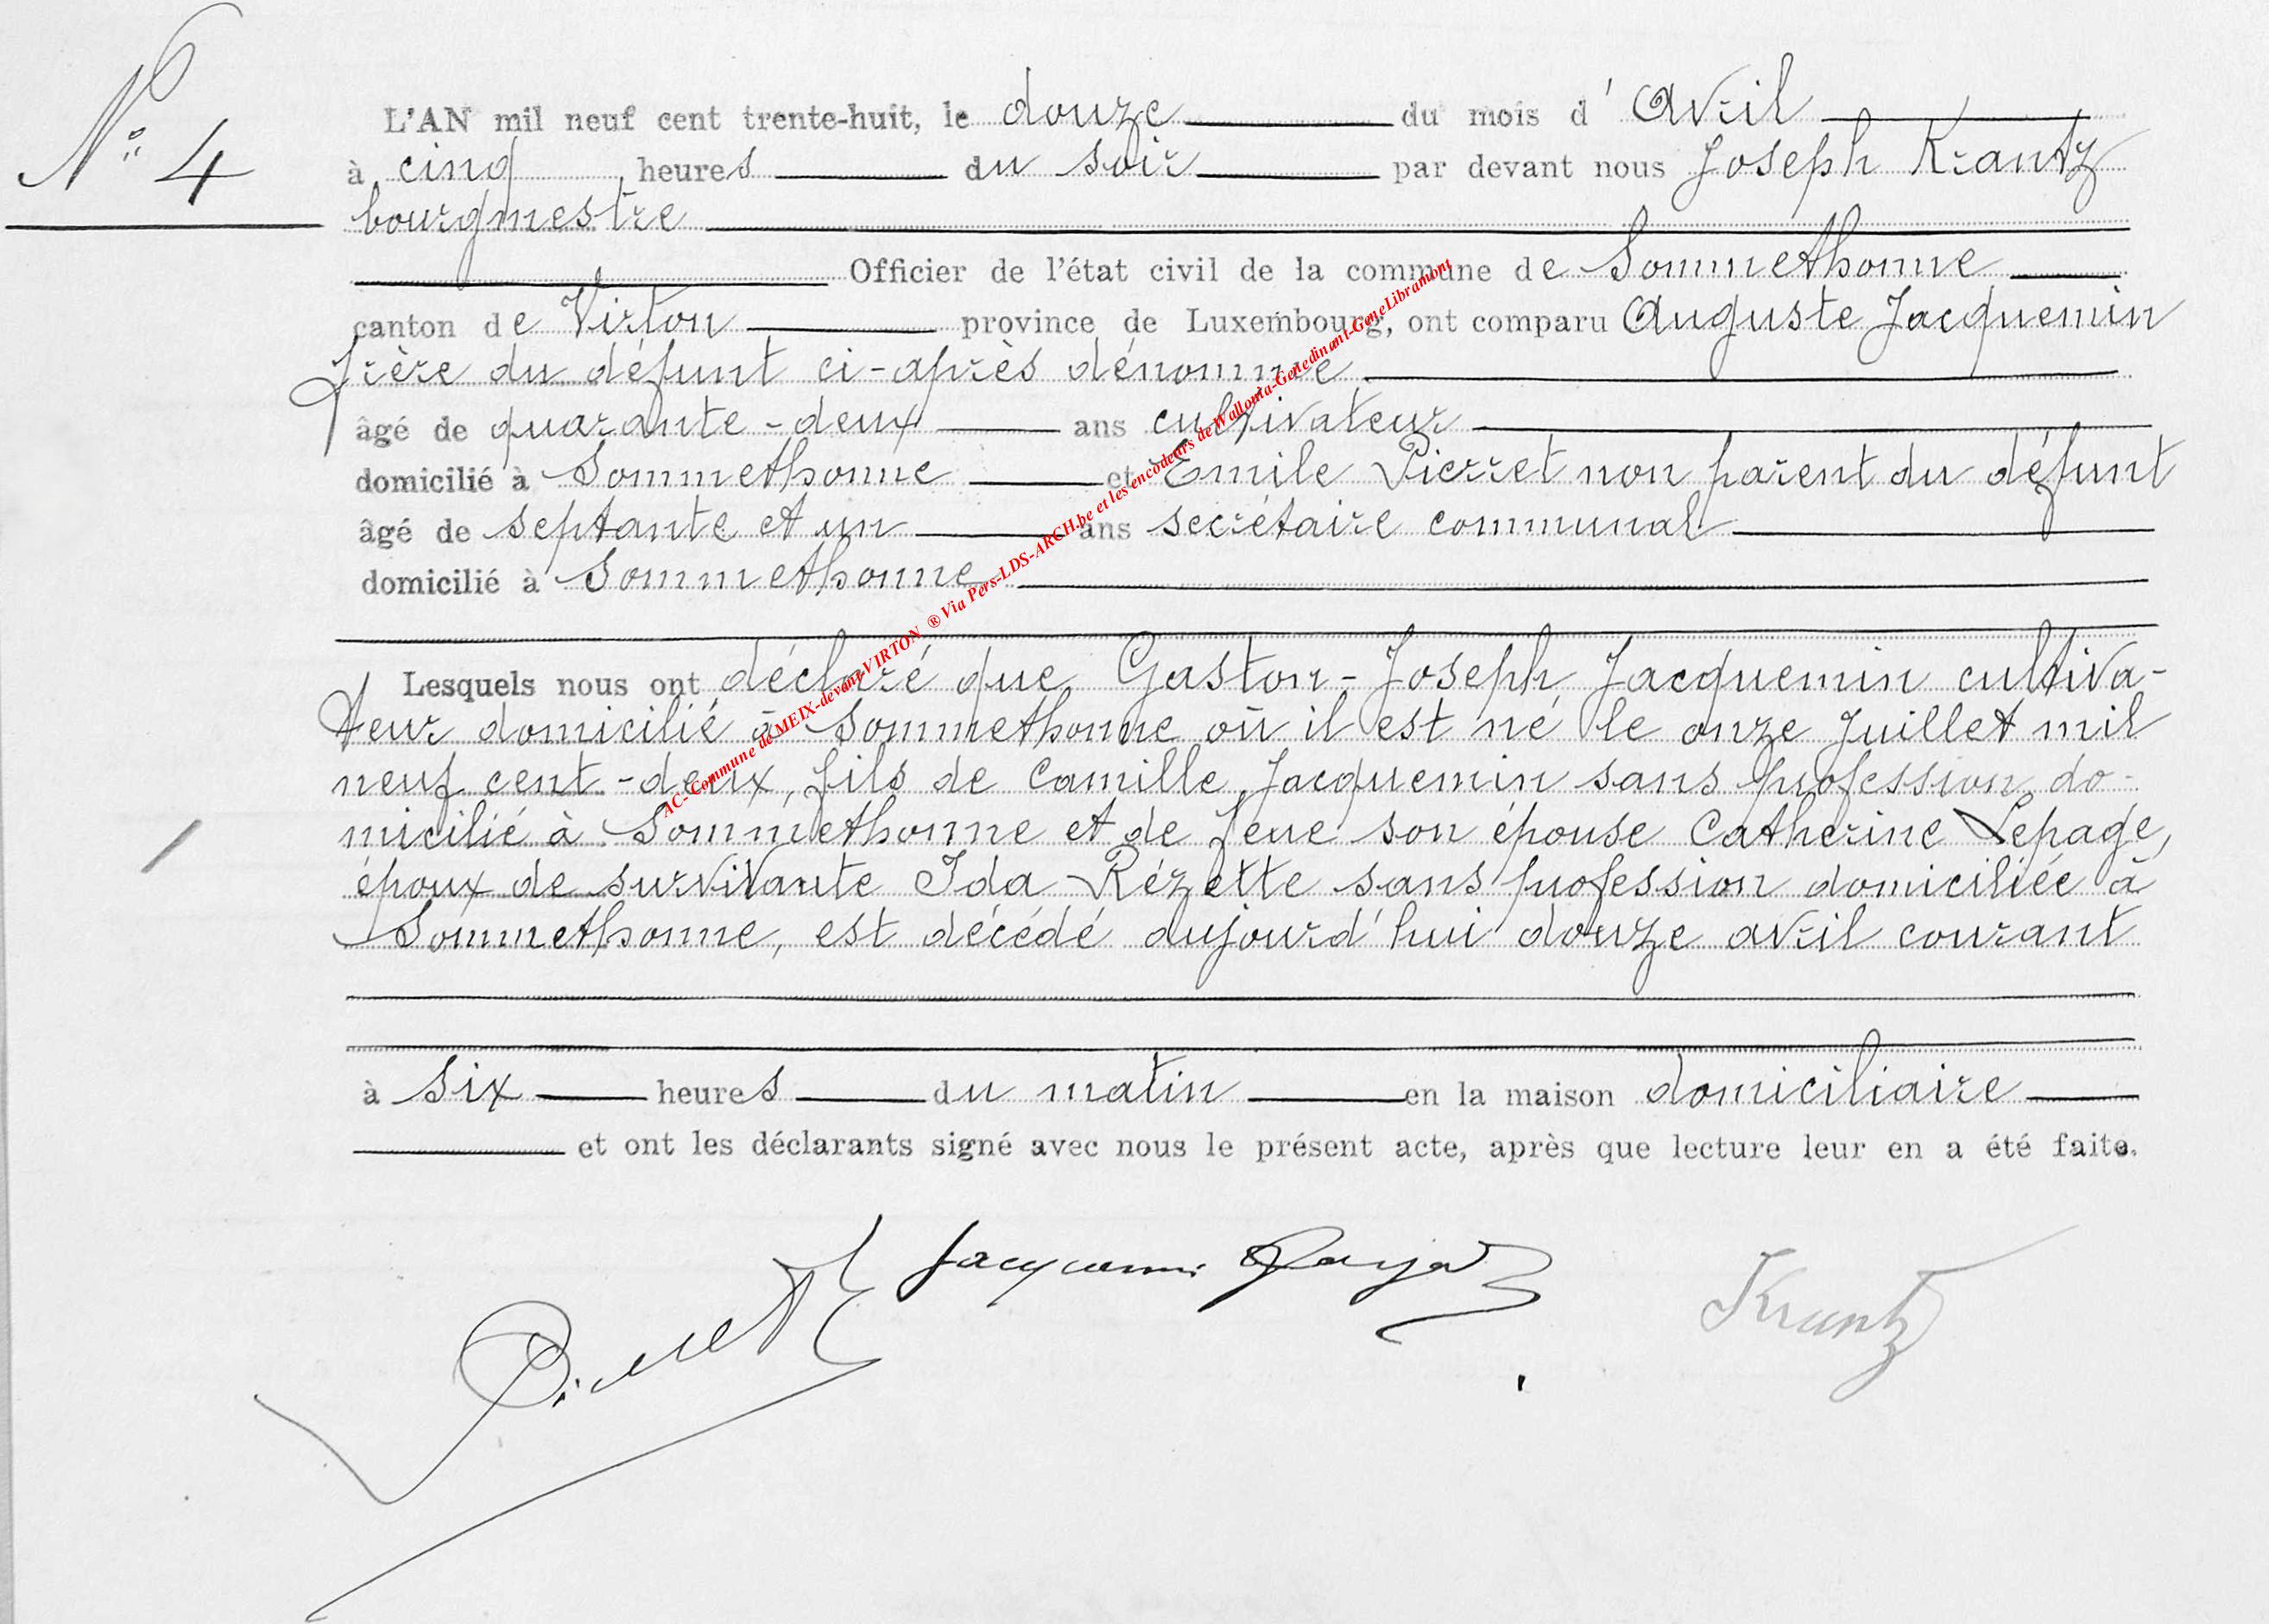 N° 4
L'AN mil neuf cent trente-huit, le douze du mois d'Avril
à cinq heures du soir par devant nous Joseph Krantz
bourgmestre
Officier de l'état civil de la commune de Sommethonne
canton de Virton province de Luxembourg, ont comparu Auguste Jacquemin
frère du défunt ci-après dénommé
âgé de quarante-deux ans cultivateur
domicilié à Sommethonne et Emile Pierret non parent du défunt
âgé de septante et un ans secrétaire communal
domicilié à Sommethonne
Lesquels nous ont déclaré que Gaston-Joseph Jacquemin cultiva-
teur domicilié à Sommethonne où il est né le onze Juillet mil
neuf cent-deux, fils de Camille Jacquemin sans profession do-
micilié à Sommethonne et de feue son épouse Catherine Lepage,
époux de survivante Ida Rézette sans profession domiciliée à
Sommethonne, est décédé aujourd'hui douze avril courant
à six heures du matin en la maison domiciliaire
et ont les déclarants signé avec nous le présent acte, après que lecture leur en a été faite.
Pierret Jacquemin Krantz
AC-Commune de MEIX-devant-VIRTON ® Via Pers-LDS-ARCH.be et les encodeurs de Wallonia-Genedinant-GeneLibramont